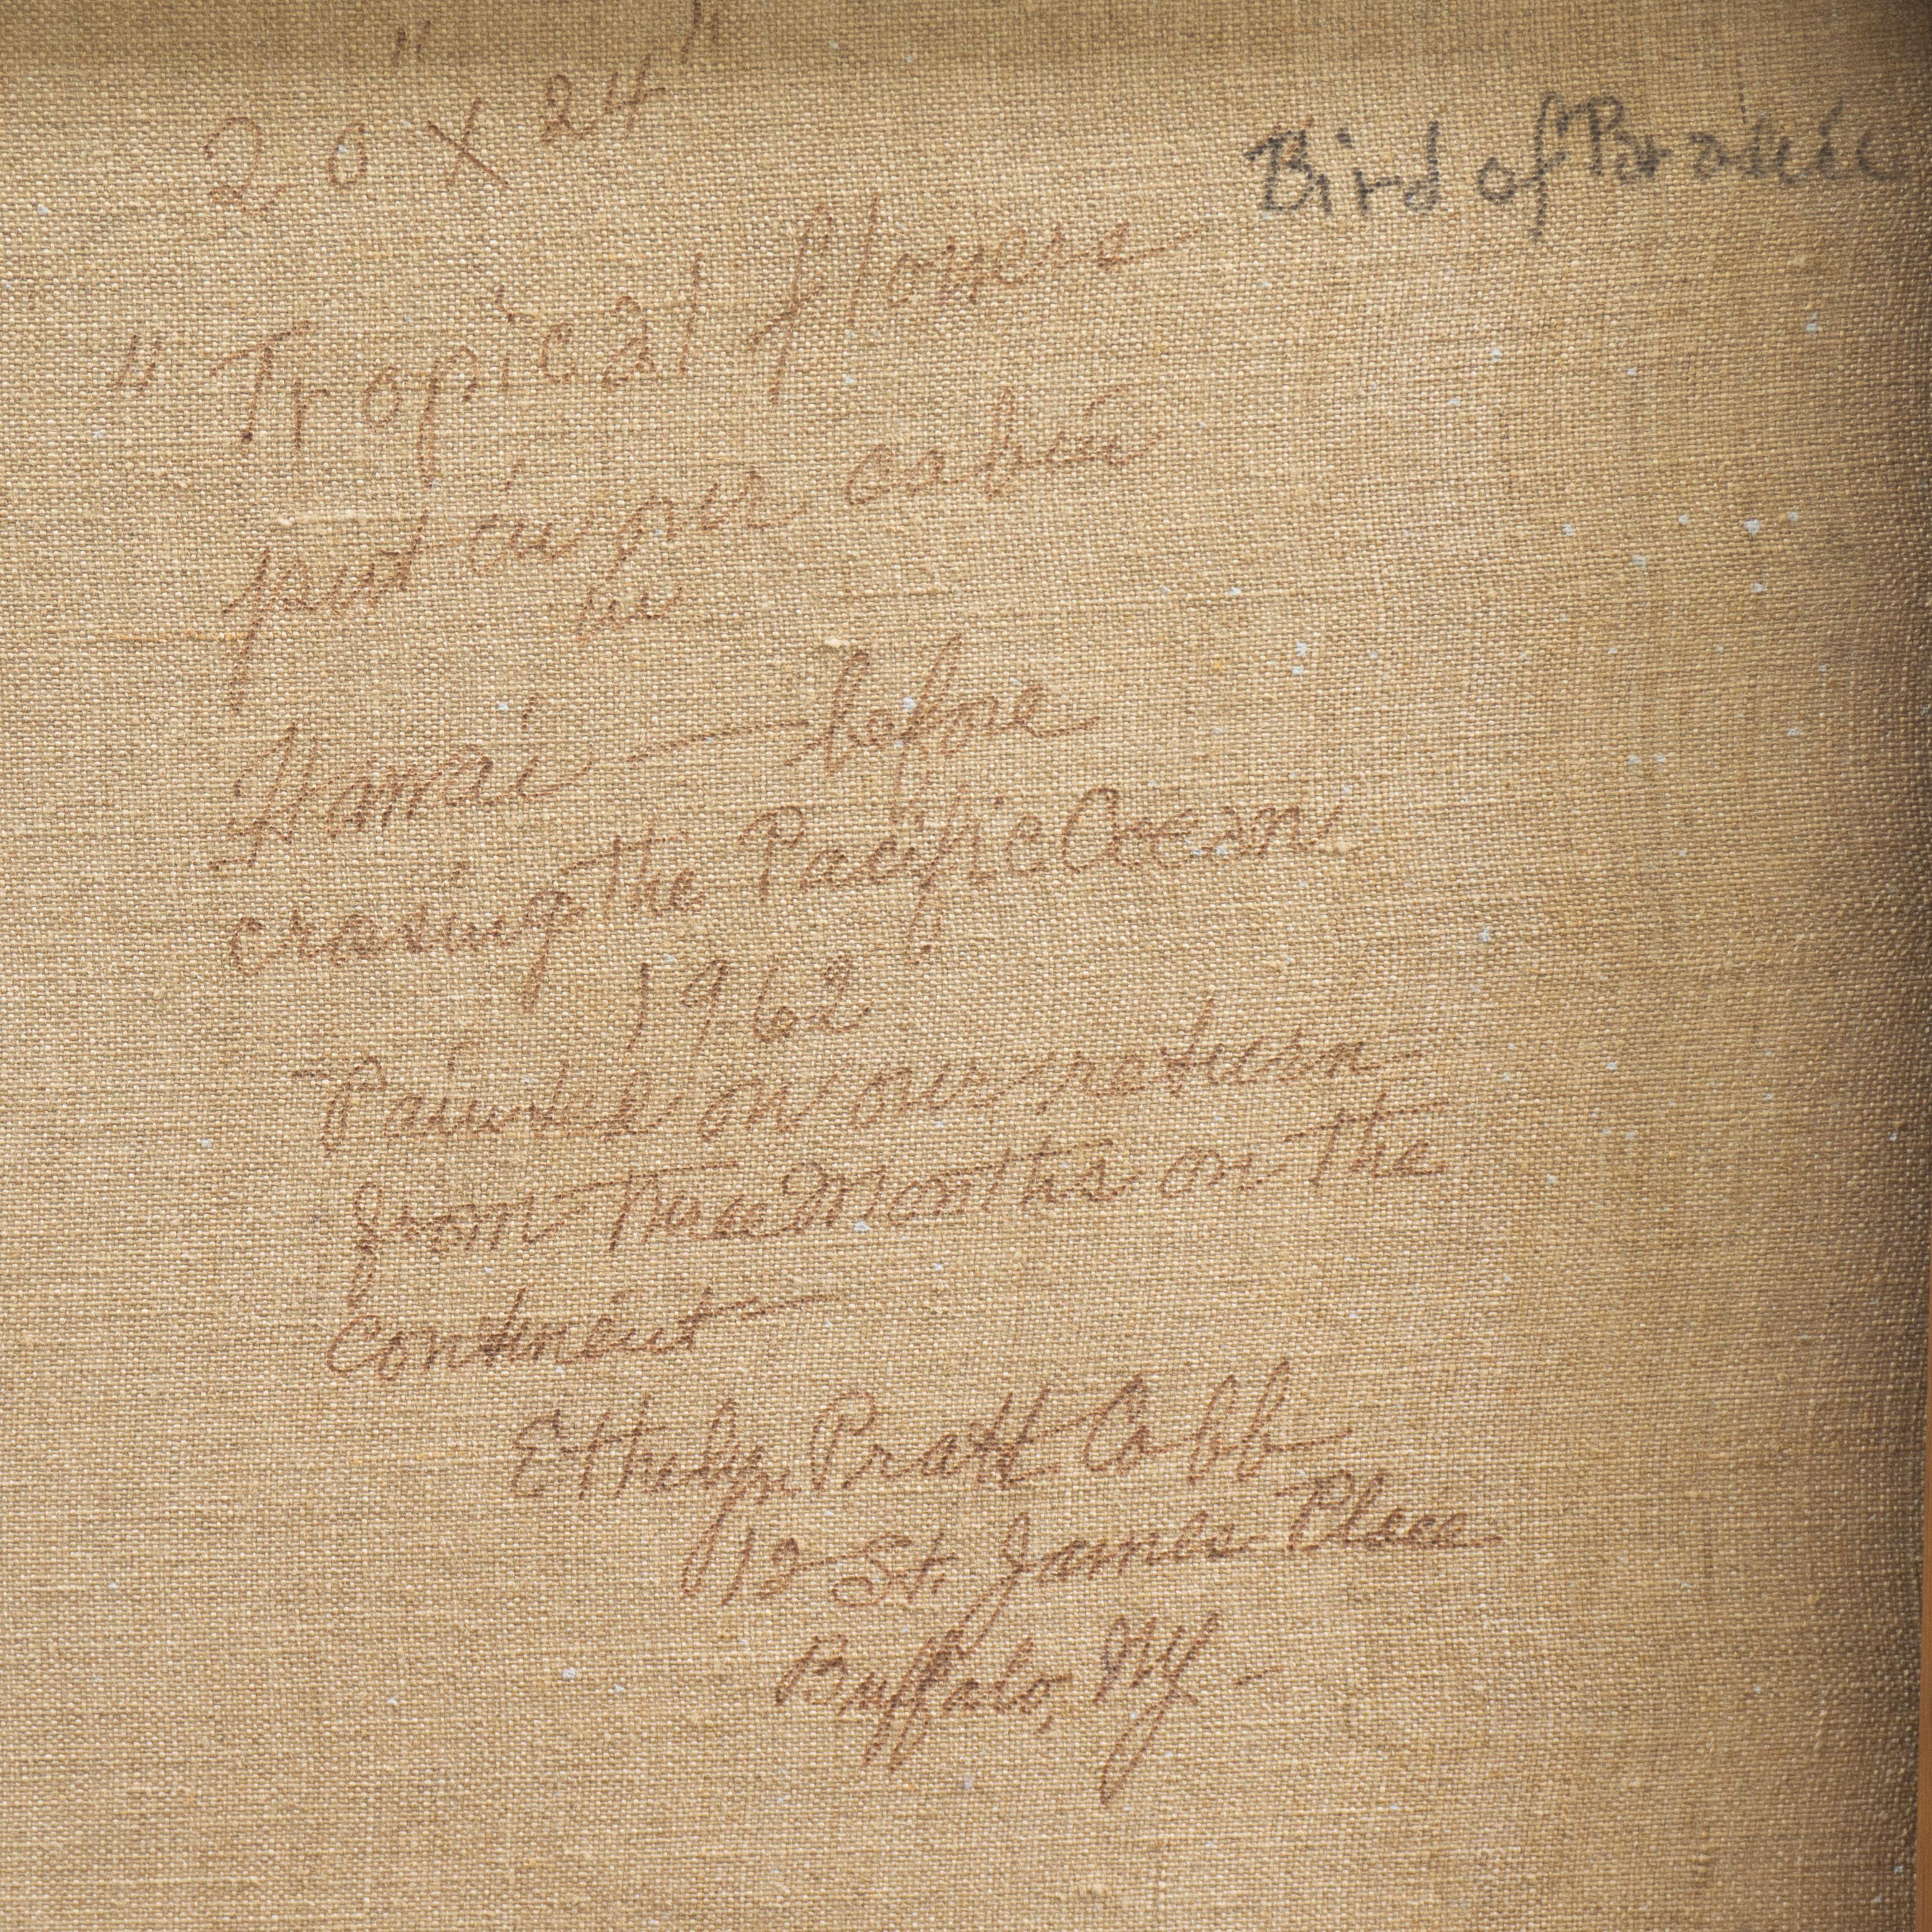 20" x 24"
Bird of Paradise
" Tropical flowers
put in our cabin
in
Hawaii — before
crosing the Pacific Ocean
1962
Painted on our return
from Three Months on the
continent —
Ethelyn Pratt Cobb
12 St. James Place
Buffalo, NY -